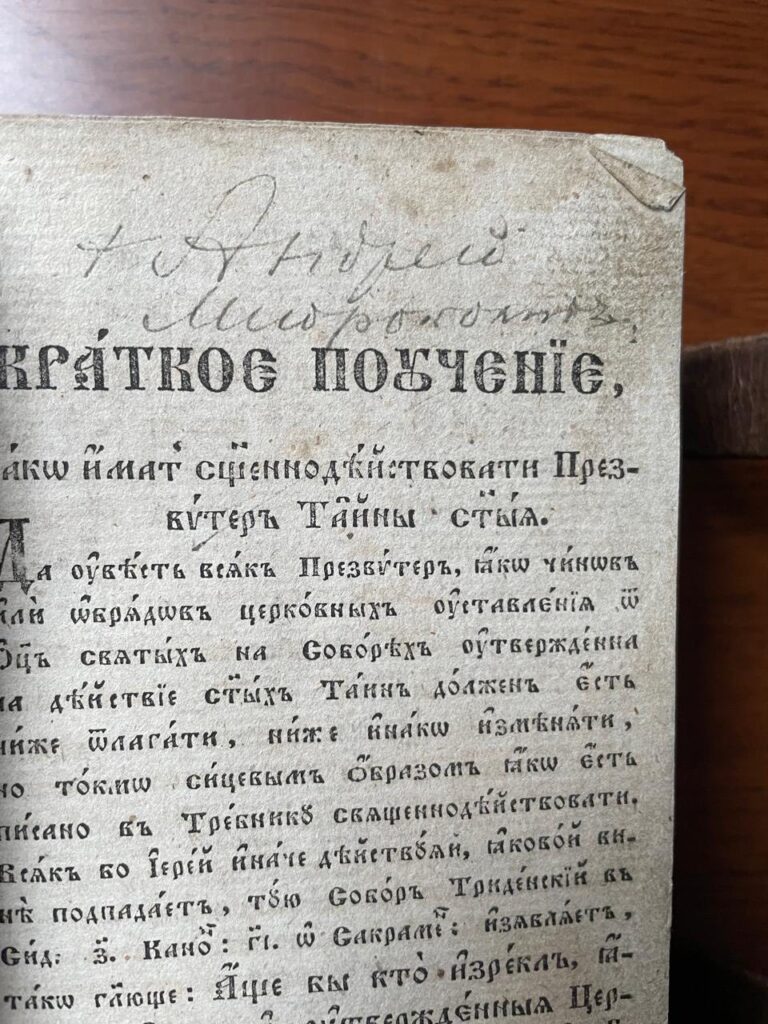 + Андрей
КРА́ТКОЕ ПОꙊЧЕНЇЕ,
ꙗ҆́кѡ и҆́мат̾ сщ҃еннодѣ́йствовати През-
вѵ́теръ Та̑йны ст҃ы́ѧ.
Да ᲂу҆вѣ́сть всѧ́къ Презвѵ́теръ, ꙗ҆́кѡ чи́нѡвъ
и҆лѝ ѡ҆брѧ́дѡвъ церко́вныхъ ᲂу҆ставле́нїѧ ѿ
Ѻ҆ц҃ъ свѧты́хъ на Собо́рѣхъ ᲂу҆тверждє́нна
на дѣ́йствїе ст҃ы́хъ Та́инъ до́лженъ є҆́сть
ни́же ѿлага́ти, ни́же и҆на́кѡ и҆змѣнѧ́ти,
но то́кмѡ си́цевымъ ѻ҆́бразомъ ꙗ҆́кѡ є҆́сть
пи́сано въ Тре́бникꙋ свѧщеннодѣ́йствовати.
Всѧ́къ бо І҆ере́й и҆на́че дѣ́йствꙋѧй, ꙗ҆ково́й ви-
нѣ̀ подпада́етъ, тꙋ́ю Собо́ръ Триде́нскїй въ
Си́д: з҃. Кано́н: г҃і. ѡ҆ Сакраме́н: и҆з̾ѧвлѧ́етъ,
та́кѡ гл҃юще: А҆́ще бы кто̀ и҆зре́клъ, ꙗ҆́-
ᲂу҆твержде́нныѧ Цер-